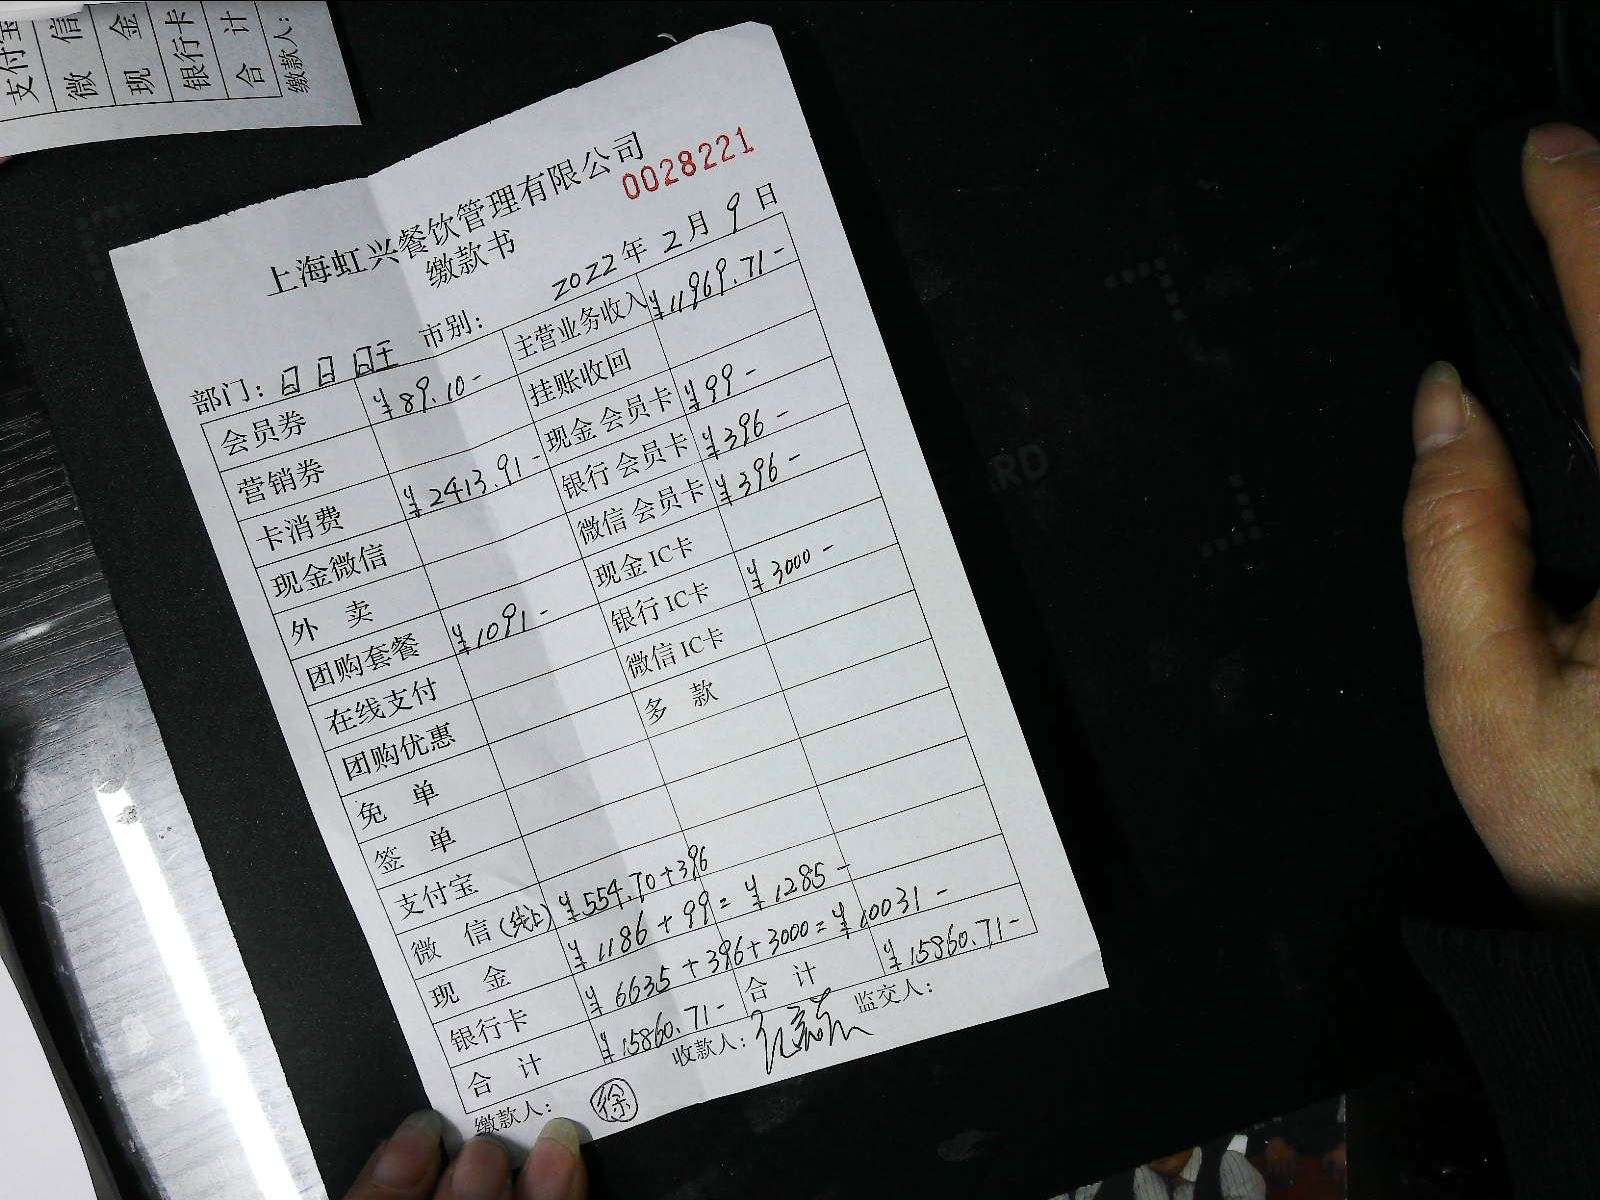 支付宝
微 信
现 金
银行卡
合 计
缴款人:
上海虹兴餐饮管理有限公司
缴款书
0028221
2022年2月9日
部门: 日日旺 市别:
会员券 ¥89.10- 主营业务收入 ¥11969.71-
营销券 挂账收回
卡消费 ¥2413.91- 现金会员卡 ¥99-
现金微信 银行会员卡 ¥396-
外 卖 微信会员卡 ¥396-
团购套餐 ¥1091- 现金IC卡
在线支付 银行IC卡 ¥3000-
团购优惠 微信IC卡
免 单 多 款
签 单
支付宝
微 信(线上) ¥554.70+396
现 金 ¥1186+99=¥1285-
银行卡 ¥6635+396+3000=¥10031-
合 计 ¥15860.71- 合 计 ¥15860.71-
缴款人: 徐 收款人: 监交人: